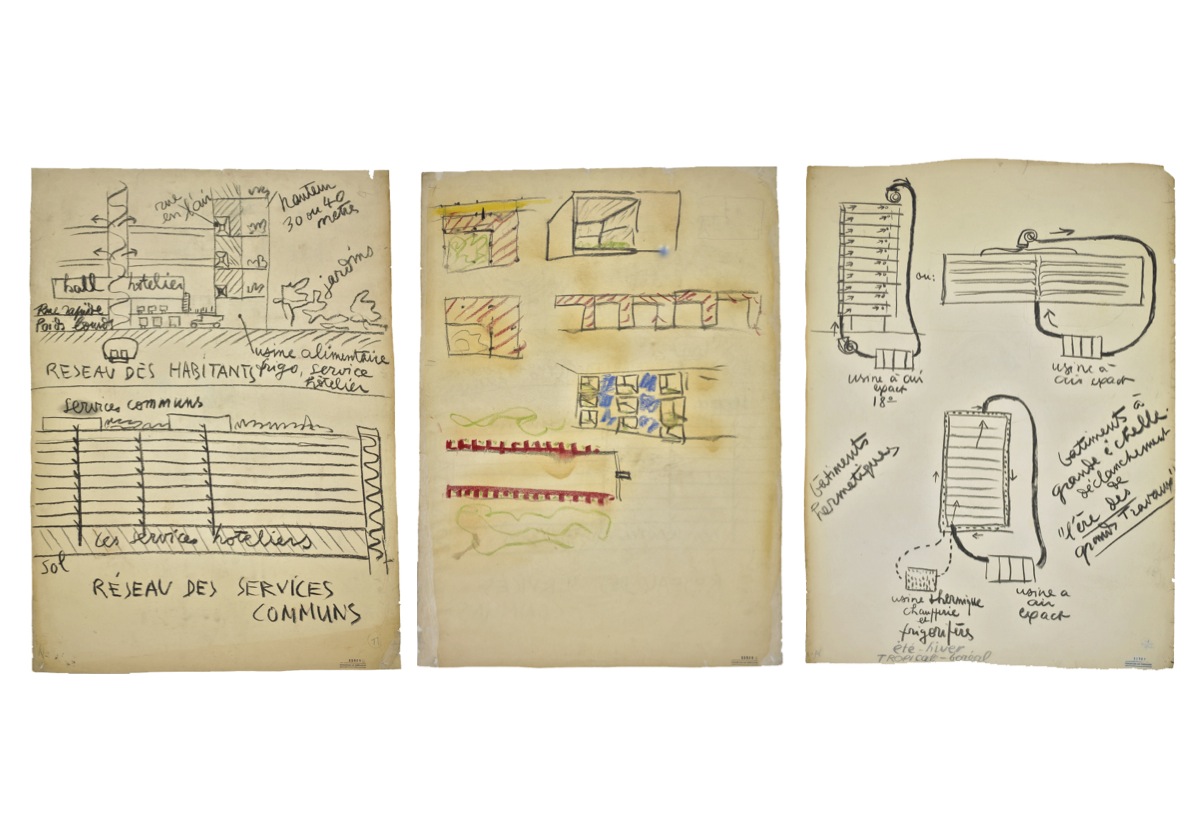 rue
en l'air
hauteur
30 ou 40
mètre
m
m
mB
m
jardins
hall hotelier
Poids lourds
usine alimentaire
frigo, service
hôtelier
RESEAU DES HABITANTS
services communs
les services hoteliers
sol
RÉSEAU DES SERVICES
COMMUNS
ou:
usine à air
expact
18°
usine à
air expact
batiments
hermetiques
batiments à
grande échelle.
déclanchement
de
"l'ère des
grands Travaux"
usine thermique
chaufferie
et
frigorifères
été - hiver
TROPICAL -
usine a
air
expact